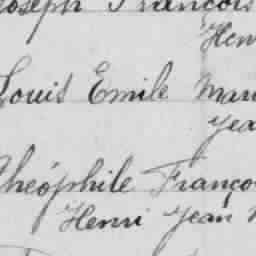 Joseph François
Hen
Louis Emile Mau
Jea
Théophile Franço
Henri Jean